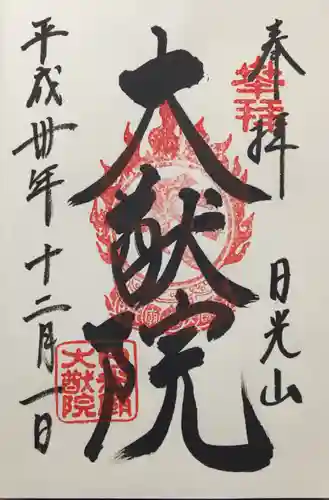 奉拝
日光山
大猷院
平成卅年十二月一日
大猷院